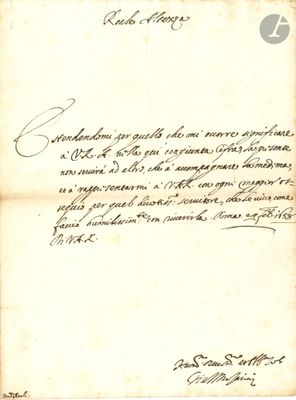 Reale Altezza
Estendendomi per quello che mi occorre significare
à V.R.A. nella qui congiunta cifra, la presente
non seruirà ad altro, che à accompagnare la medema,
et à rappresentarmi à V.R.A. con ogni maggior os-
sequio per quel diuotiss. seruitore, che le uiuo, come
faccio humilissim.te con riuerirla. Roma 24 feb. 1658
Di V.R.A.